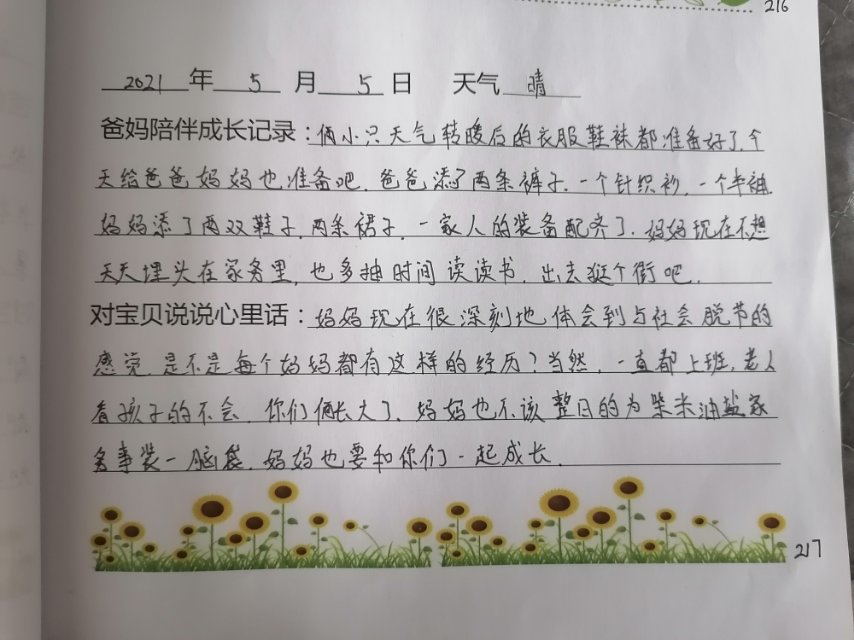 216
2021 年 5 月 5 日 天气 晴
爸妈陪伴成长记录：俩小只天气转暖后的衣服鞋袜都准备好了,今
天给爸爸妈妈也准备吧.爸爸添了两条裤子.一个针织衫.一个半袖.
妈妈添了两双鞋子.两条裙子.一家人的装备配齐了.妈妈现在不想
天天埋头在家务里.也多抽时间读读书.出去逛个街吧.
对宝贝说说心里话：妈妈现在很深刻地体会到与社会脱节的
感觉.是不是每个妈妈都有这样的经历？当然.一直都上班,老人
看孩子的不会.你们俩长大了.妈妈也不该整日的为柴米油盐家
务事装一脑袋.妈妈也要和你们一起成长.
217